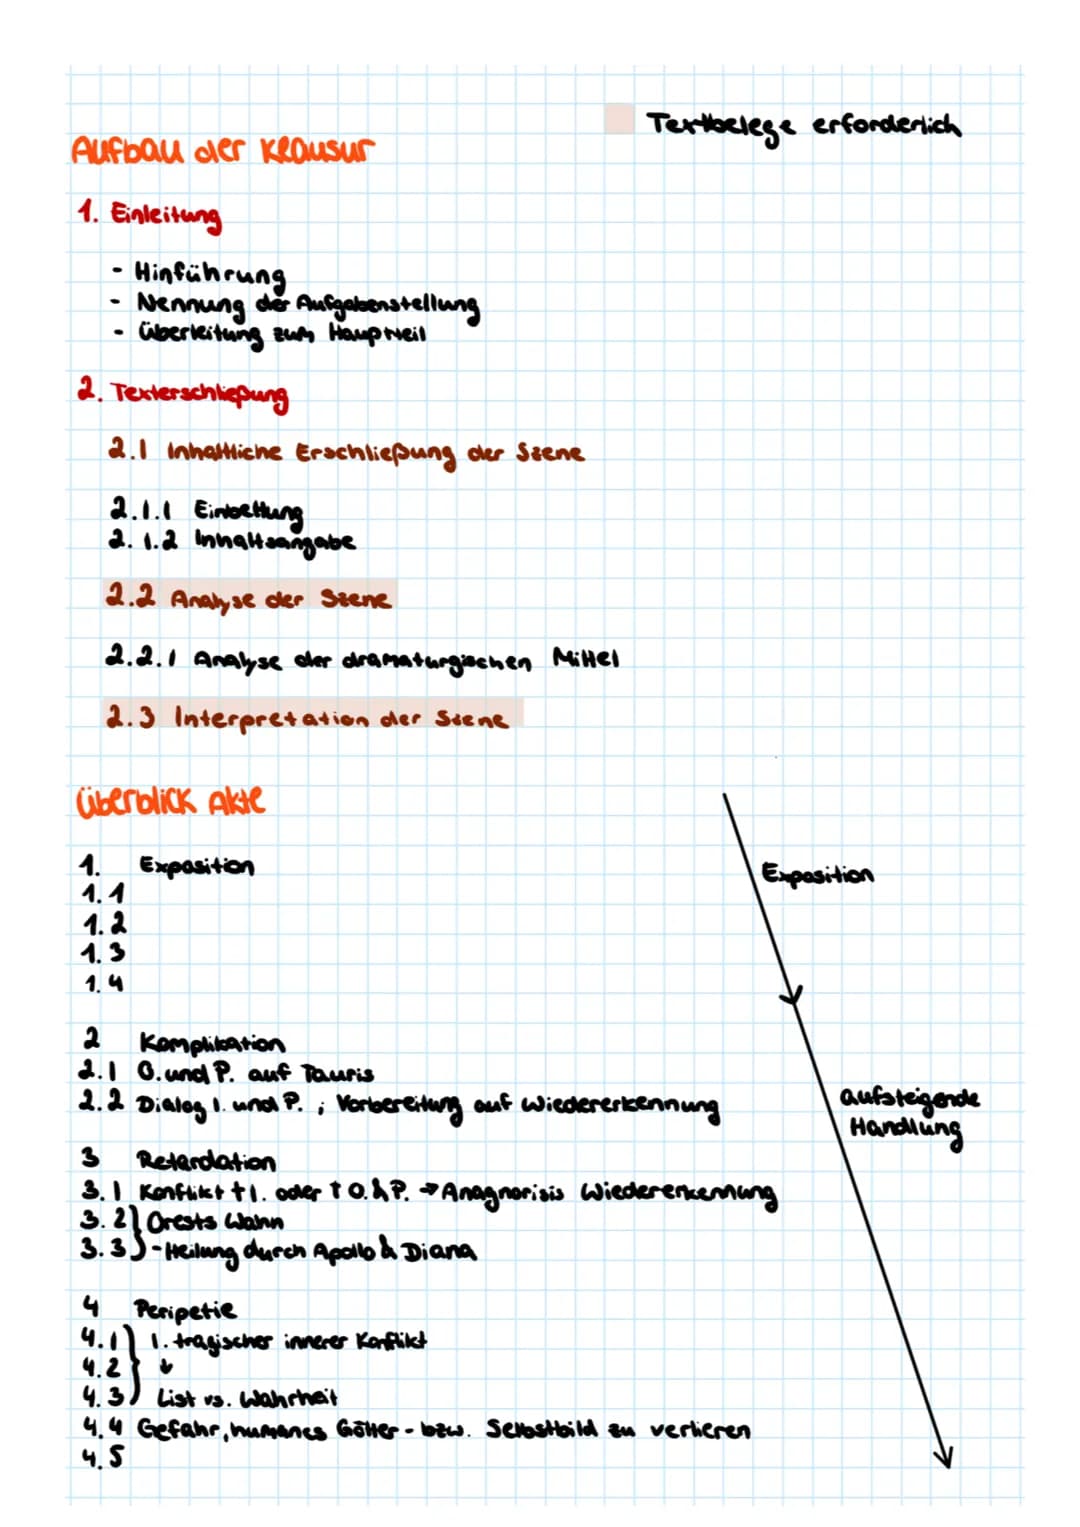 Textbelege erforderlich
Aufbau der Klausur
1. Einleitung
- Hinführung
- Nennung der Aufgabenstellung
- Überleitung zum Hauptteil
2. Texterschließung
2.1 Inhaltliche Erschließung der Szene
2.1.1 Einbettung
2.1.2 Inhaltsangabe
2.2 Analyse der Szene
2.2.1 Analyse der dramaturgischen Mittel
2.3 Interpretation der Szene
Überblick Akte
1. Exposition
1.1
1.2
1.3
1.4
Exposition
2 Komplikation
2.1 O. und P. auf Tauris
2.2 Dialog I. und P. ; Vorbereitung auf Wiedererkennung
aufsteigende
Handlung
3 Retardation
3.1 Konflikt † I. oder † O. & P. → Anagnorisis Wiedererkennung
3.2 } Orests Wahn
3.3 } - Heilung durch Apollo & Diana
4 Peripetie
4.1 } I. tragischer innerer Konflikt
4.2 } ↓
4.3 } List vs. Wahrheit
4.4 Gefahr, humanes Götter- bzw. Selbstbild zu verlieren
4.5